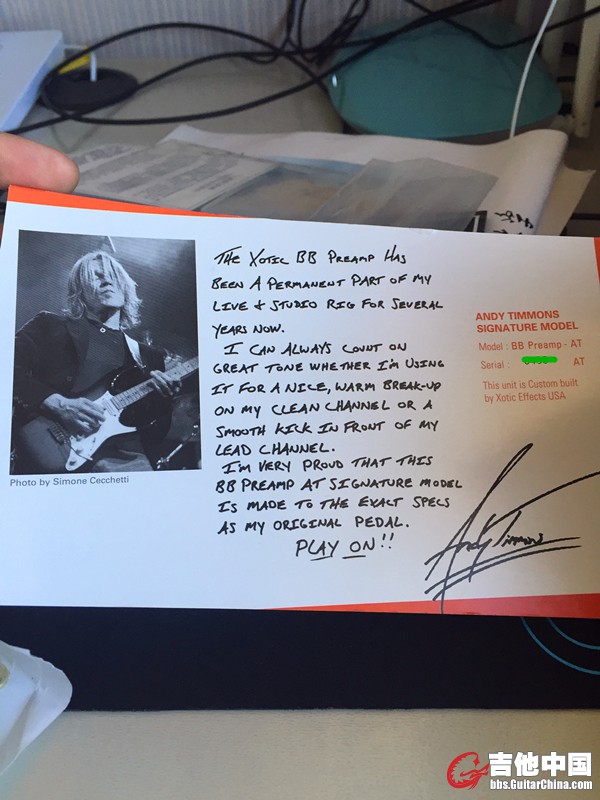 THE XOTIC BB PREAMP HAS
BEEN A PERMANENT PART OF MY
LIVE + STUDIO RIG FOR SEVERAL
YEARS NOW.
I CAN ALWAYS COUNT ON
GREAT TONE WHETHER I'M USING
IT FOR A NICE, WARM BREAK-UP
ON MY CLEAN CHANNEL OR A
SMOOTH KICK IN FRONT OF MY
LEAD CHANNEL.
I'M VERY PROUD THAT THIS
BB PREAMP AT SIGNATURE MODEL
IS MADE TO THE EXACT SPECS
AS MY ORIGINAL PEDAL.
PLAY ON!!
Andy Timmons
Photo by Simone Cecchetti
ANDY TIMMONS
SIGNATURE MODEL
Model : BB Preamp - AT
Serial : AT
This unit is Custom built
by Xotic Effects USA
吉他中国
bbs.GuitarChina.com